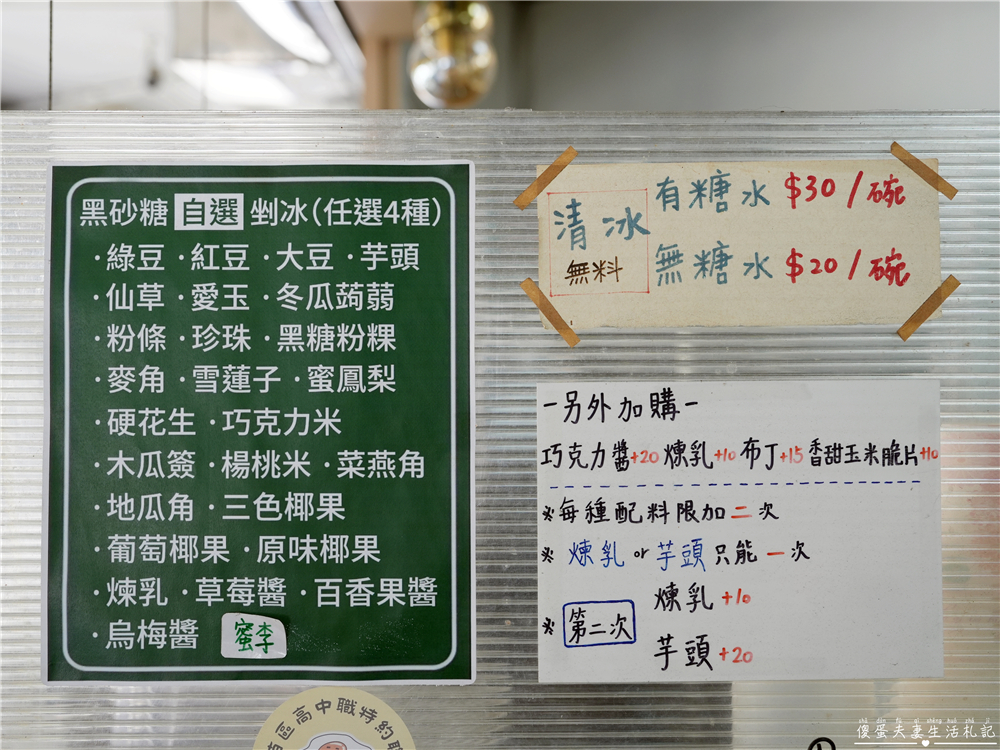 黑砂糖 自選 剉冰(任選4種)
·綠豆 ·紅豆 ·大豆 ·芋頭
·仙草 ·愛玉 ·冬瓜蒟蒻
·粉條 ·珍珠 ·黑糖粉粿
·麥角 ·雪蓮子 ·蜜鳳梨
·硬花生 ·巧克力米
·木瓜簽 ·楊桃米 ·菜燕角
·地瓜角 ·三色椰果
·葡萄椰果 ·原味椰果
·煉乳 ·草莓醬 ·百香果醬
·烏梅醬 蜜李
區高中職特約
清冰
無料
有糖水 $30/碗
無糖水 $20/碗
-另外加購-
巧克力醬+20 煉乳+10 布丁+15 香甜玉米脆片+10
※每種配料限加二次
※煉乳or芋頭只能一次
※第二次
煉乳+10
芋頭+20
傻蛋夫妻生活札記